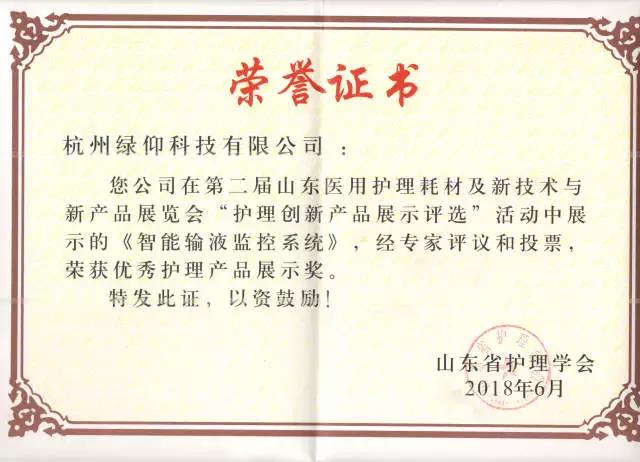 荣誉证书
杭州绿仰科技有限公司：
您公司在第二届山东医用护理耗材及新技术与
新产品展览会“护理创新产品展示评选”活动中展
示的《智能输液监控系统》，经专家评议和投票，
荣获优秀护理产品展示奖。
特发此证，以资鼓励！
山东省护理学会
2018年6月